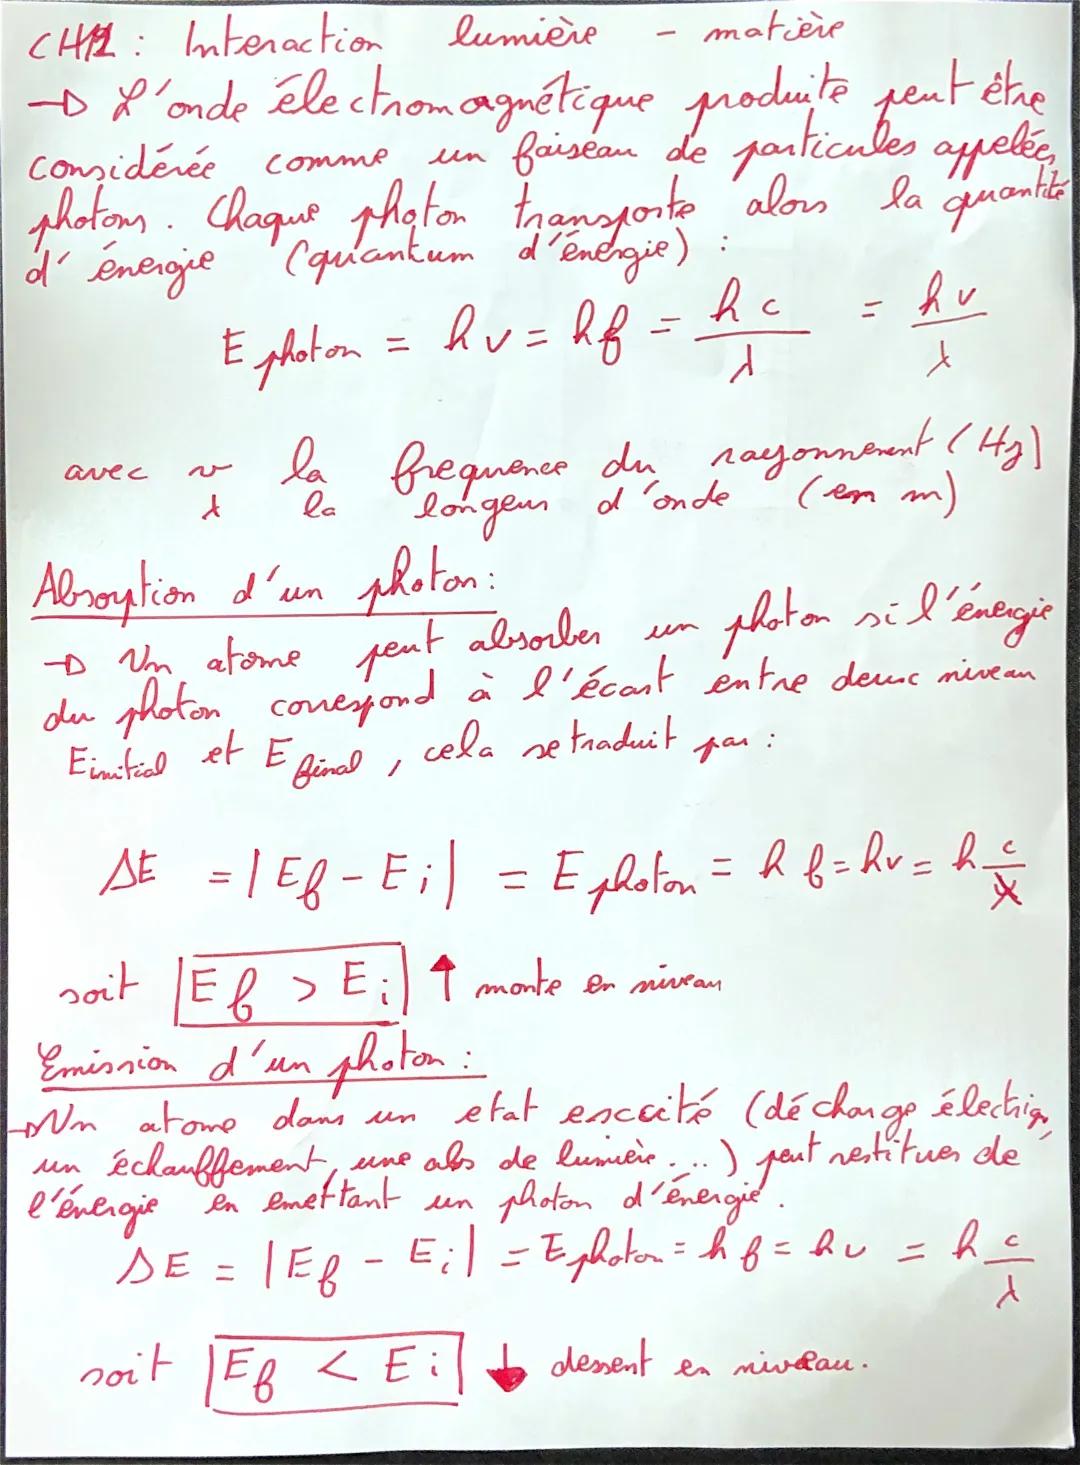 CH12 : Interaction lumière - matière
→ L'onde électromagnétique produite peut être
considérée comme un faiseau de particules appelées
photons. Chaque photon transporte alors la quantité
d'énergie (quantum d'énergie) :
E photon = hν = hf = hc/λ = hv/λ
avec ν la frequence du rayonnement (Hz)
λ la longeur d'onde (en m)
Absorption d'un photon :
→ Un atome peut absorber un photon si l'énergie
du photon correspond à l'écart entre deux niveau
E initial et E final, cela se traduit par :
ΔE = |Ef - Ei| = E photon = hf = hν = h c/λ
soit Ef > Ei ↑ monte en niveau
Emission d'un photon :
→ Un atome dans un etat excité (décharge électriq
un échauffement, une abs de lumière...) peut restituer de
l'énergie en emettant un photon d'énergie.
ΔE = |Ef - Ei| = E photon = hf = hν = h c/λ
soit Ef < Ei ↓ dessent en niveau.